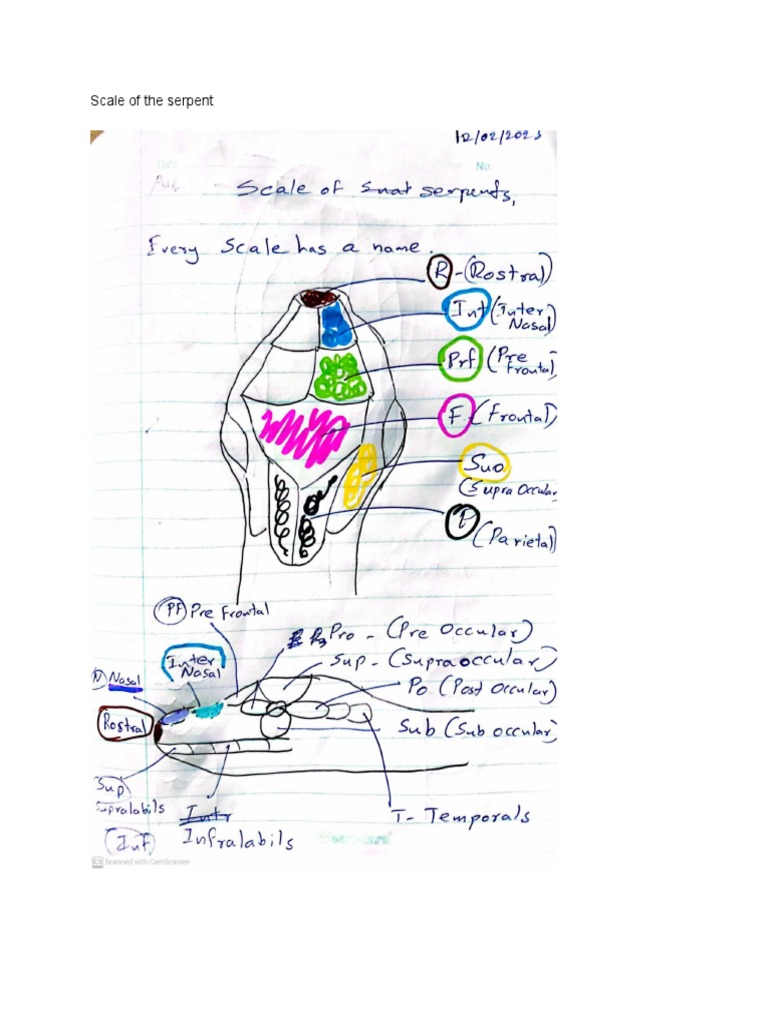 Scale of the serpent
12/02/2023
Date
No.
Scale of Snat serpents,
Every Scale has a name.
R - (Rostral)
Int (Inter
Nasal)
Prf (Pre
Frontal)
F (Frontal)
Suo
(Supra Occular
P
(Parietal)
PF Pre frontal
Pro - (Pre Occular)
Inter
Nasal
Sup - (Supraoccular)
N Nasal
Po (Post Occular)
Rostral
Sub (Sub occular)
Sup
Supralabils
Intr
T- Temporals
Inf Infralabils
CS Scanned with CamScanner